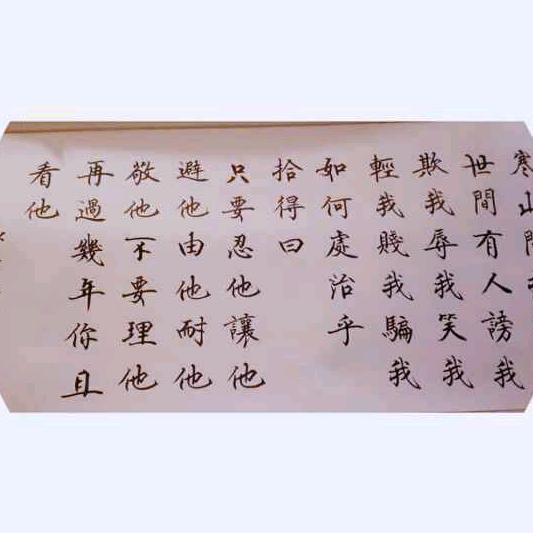 寒山問
世間有人謗我
欺我辱我笑我
輕我賤我騙我
如何處治乎
拾得曰
只要忍他讓他
避他由他耐他
敬他不要理他
再過幾年你且
看他